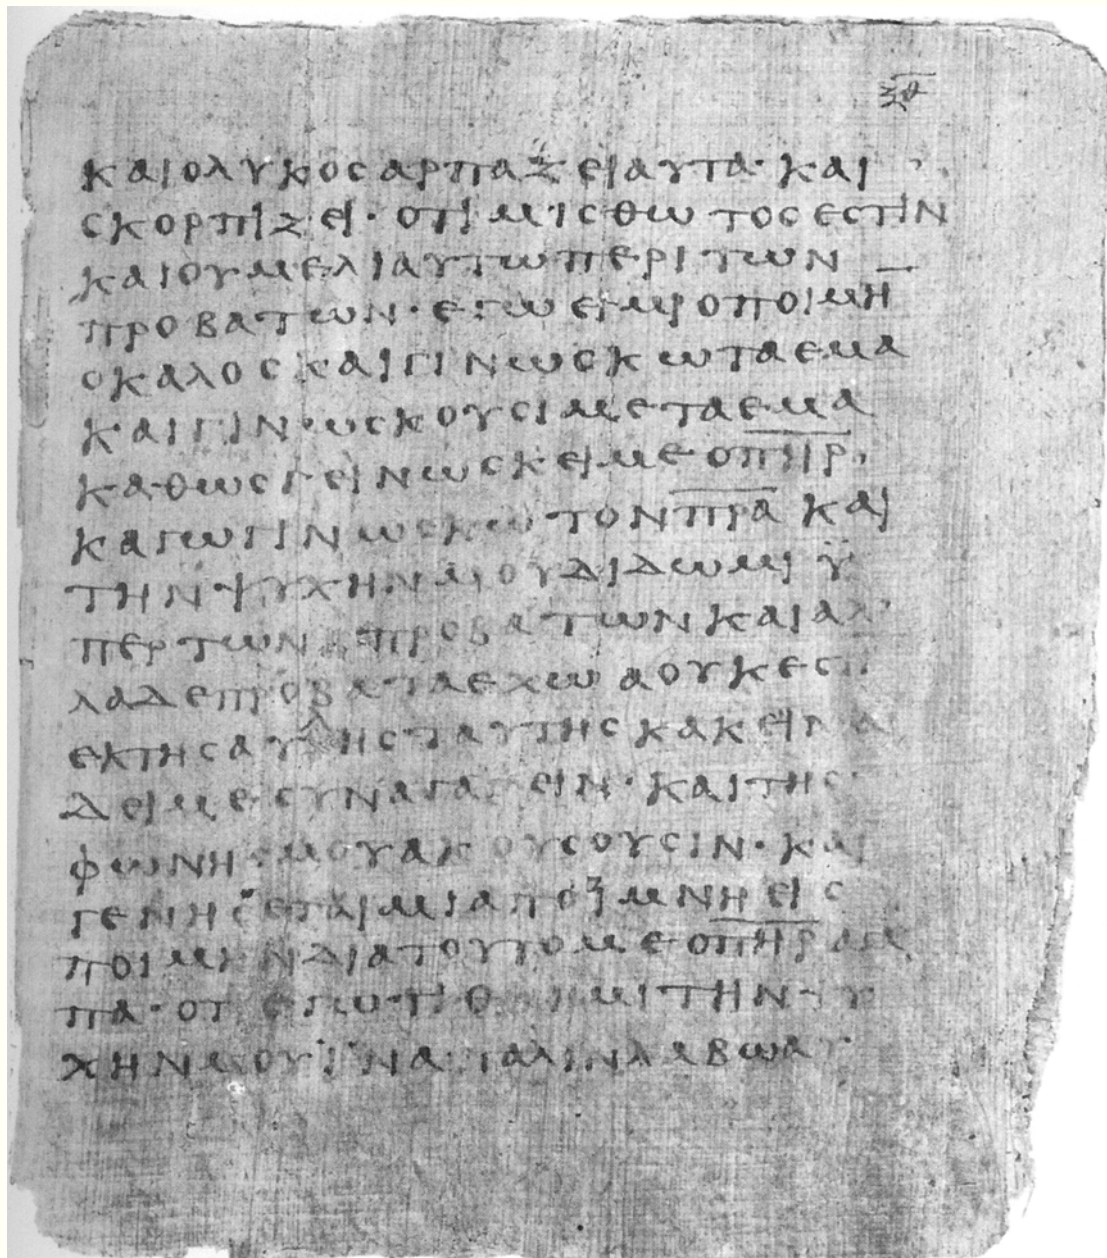 ξθ
ΚΑΙΟΛΥΚΟϹΑΡΠΑΖΕΙΑΥΤΑ· ΚΑΙ
ϹΚΟΡΠΙΖΕΙ· ΟΤΙΜΙϹΘΩΤΟϹΕϹΤΙΝ
ΚΑΙΟΥΜΕΛΙΑΥΤΩΠΕΡΙΤΩΝ
ΠΡΟΒΑΤΩΝ· ΕΓΩΕΙΜΙΟΠΟΙΜΗ̅
ΟΚΑΛΟϹΚΑΙΓΙΝΩϹΚΩΤΑΕΜΑ
ΚΑΙΓΙΝΩϹΚΟΥϹΙΜΕΤΑΕΜΑ
ΚΑΘΩϹΓΕΙΝΩϹΚΕΙΜΕΟΠ̅Η̅Ρ̅
ΚΑΓΩΓΙΝΩϹΚΩΤΟΝΠ̅Ρ̅Α̅ ΚΑΙ
ΤΗΝΨΥΧΗΝΜΟΥΔΙΔΩΜΙΫ
ΠΕΡΤΩΝΠΡΟΒΑΤΩΝΚΑΙΑΛ
ΛΑΔΕΠΡΟΒΑΤΑΕΧΩΑΟΥΚΕϹΤΙ
ΕΚΤΗϹΑΥΛΗϹΤΑΥΤΗϹΚΑΚΕΙΝΑ
ΔΕΙΜΕϹΥΝΑΓΑΓΕΙΝ· ΚΑΙΤΗϹ
ΦΩΝΗϹΜΟΥΑΚΟΥϹΟΥϹΙΝ· ΚΑΙ
ΓΕΝΗϹΕΤΑΙΜΙΑΠΟΙΜΝΗΕΙϹ
ΠΟΙΜΗΝΔΙΑΤΟΥΤΟΜΕΟΠ̅Η̅Ρ̅ΑΓΑ
ΠΑ· ΟΤΙΕΓΩΤΙΘΗΜΙΤΗΝΨΥ
ΧΗΝΜΟΥΪΝΑΠΑΛΙΝΛΑΒΩΑΥ